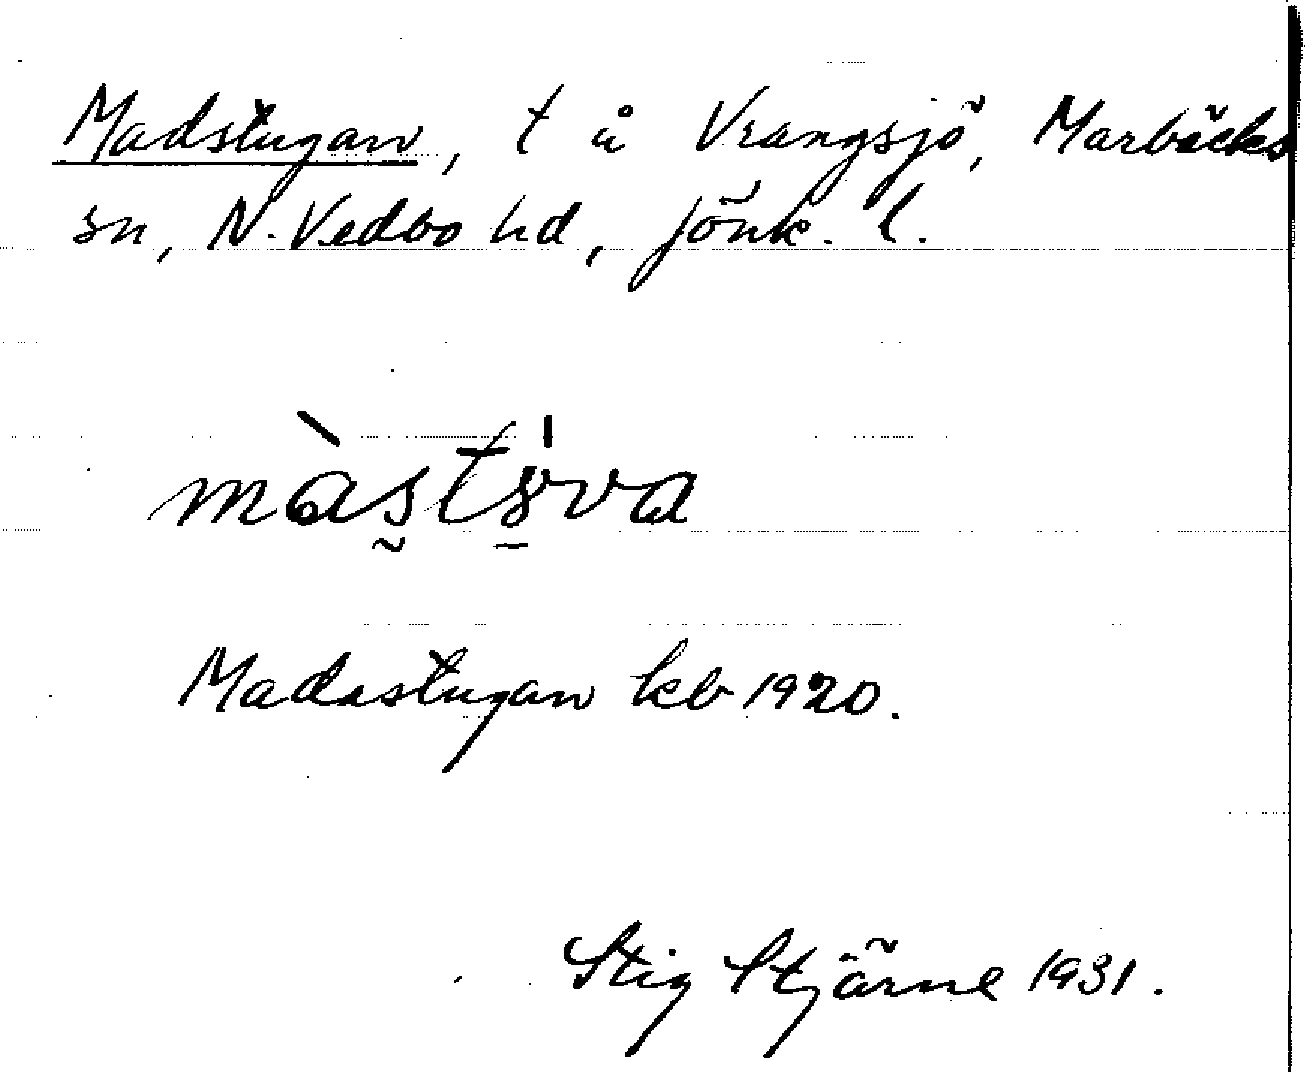 Madstugan, t å Vrangsjö, Marbäcks
sn, N. Vedbo hd, Jönk. l.
màstöva
Madastugan kb 1920.
Stig Stjärne 1931.